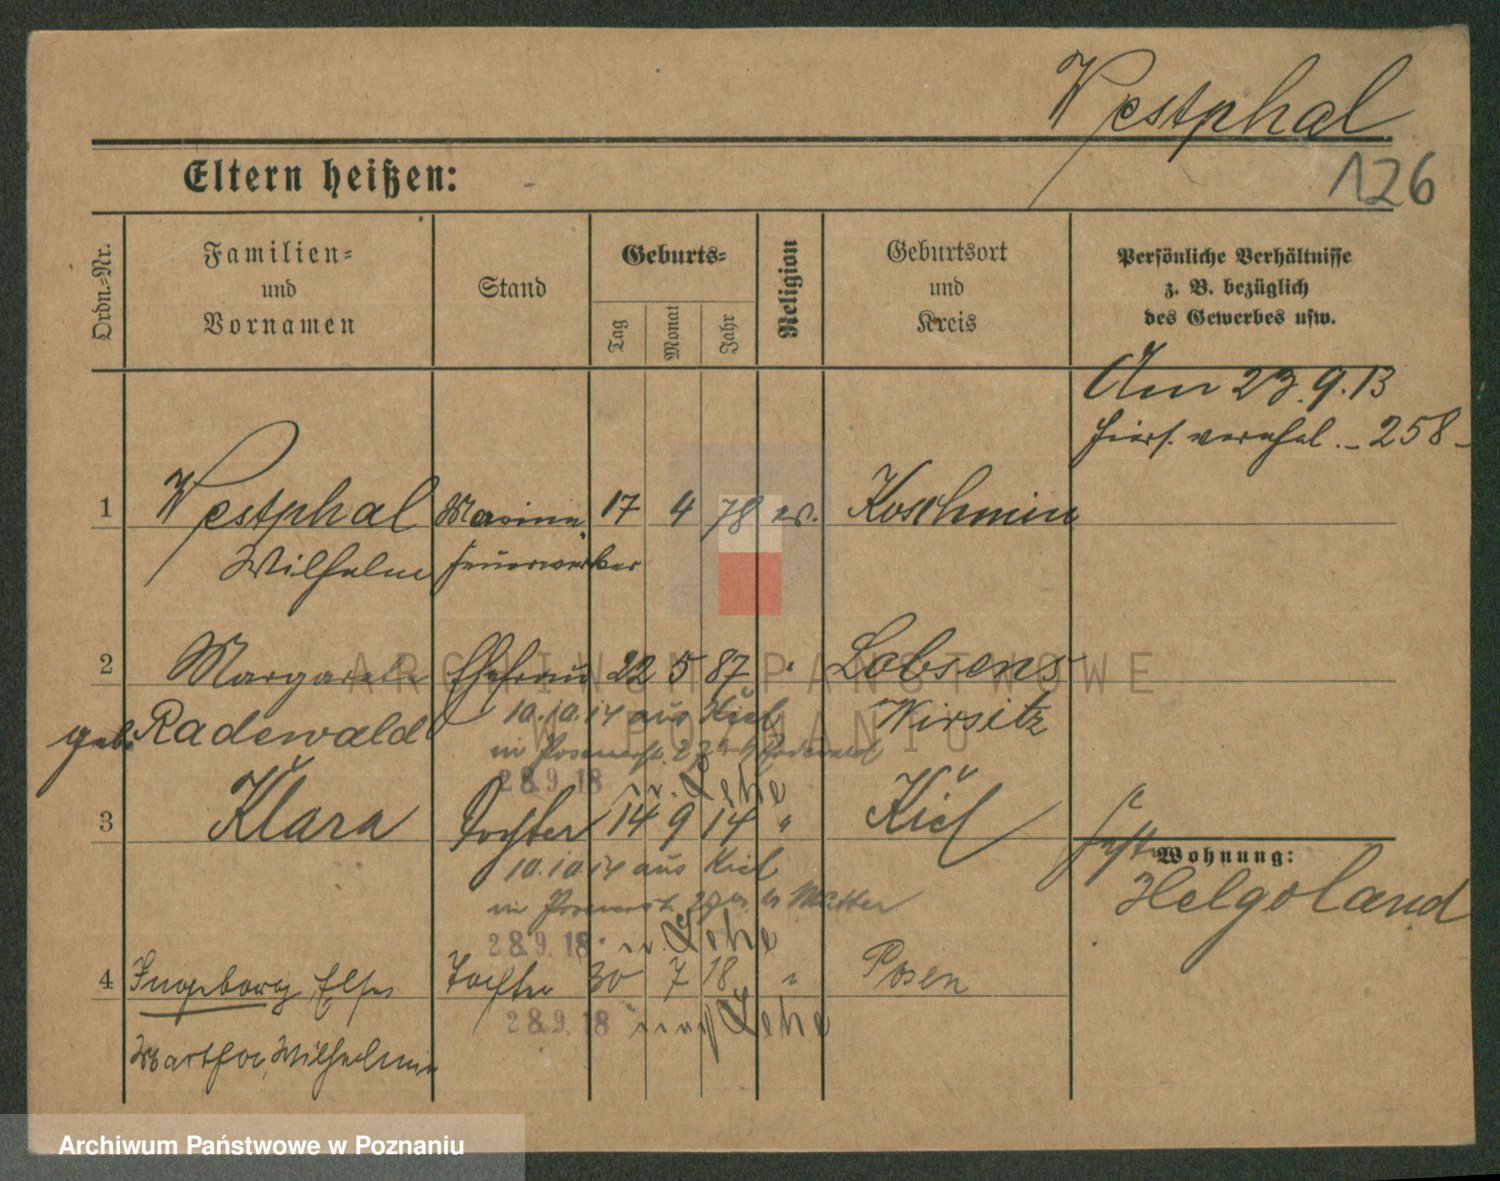 Westphal
126
Eltern heißen: -
Ordn.-Nr.
Familien-
und
Vornamen
Stand
Geburts-
Tag
Monat
Jahr
Religion
Geburtsort
und
Kreis
Persönliche Verhältnisse
z. B. bezüglich
des Gewerbes usw.
Am 23.9.13
hiers. verehel. - 258 -
1 Westphal Marine 17 4 78 ev. Koschmin
Wilhelm feuerwerker
2 Margarete Ehefrau 22 5 87 " Lobsens
geb. Radewald 10.10.14 aus Kiel Wirsitz
in Posenerst. 27a b/ Radewald
28.9.18 n. Lehe
3 Klara Tochter 14 9 14 " Kiel
10.10.14 aus Kiel
in 27a b/ Mutter
28.9.18 n. Lehe
Wohnung:
Helgoland
4 Ingeborg Else Tochter 30 7 18 " Posen
28.9.18 nach Lehe
Martha, Wilhelmine
ARCHIWUM PAŃSTWOWE
W POZNANIU
Archiwum Państwowe w Poznaniu